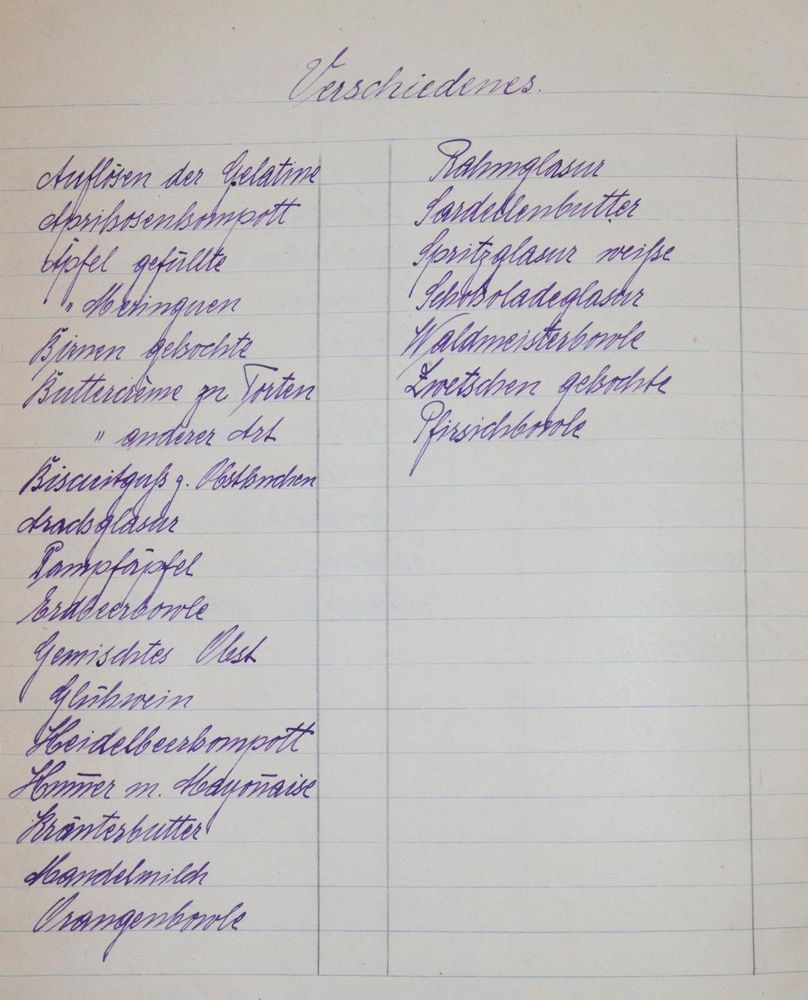 Verschiedenes.
Auflösen der Gelatine
Aprikosenkompott
Äpfel gefüllte
" Meringuen
Birnen gekochte
Buttercrème zu Torten
" anderer Art
Biscuitguß z. Obstkuchen
Aradsglasur
Dampfäpfel
Erdbeerbowle
Gemischtes Obst
Glühwein
Heidelbeerkompott
Hum̄er m. Mayon̄aise
Kräuterbutter
Mandelmilch
Orangenbowle
Rahmglasur
Sardellenbutter
Spritzglasur weiße
Schokoladeglasur
Waldmeisterbowle
Zwetschen gekochte
Pfirsichbowle